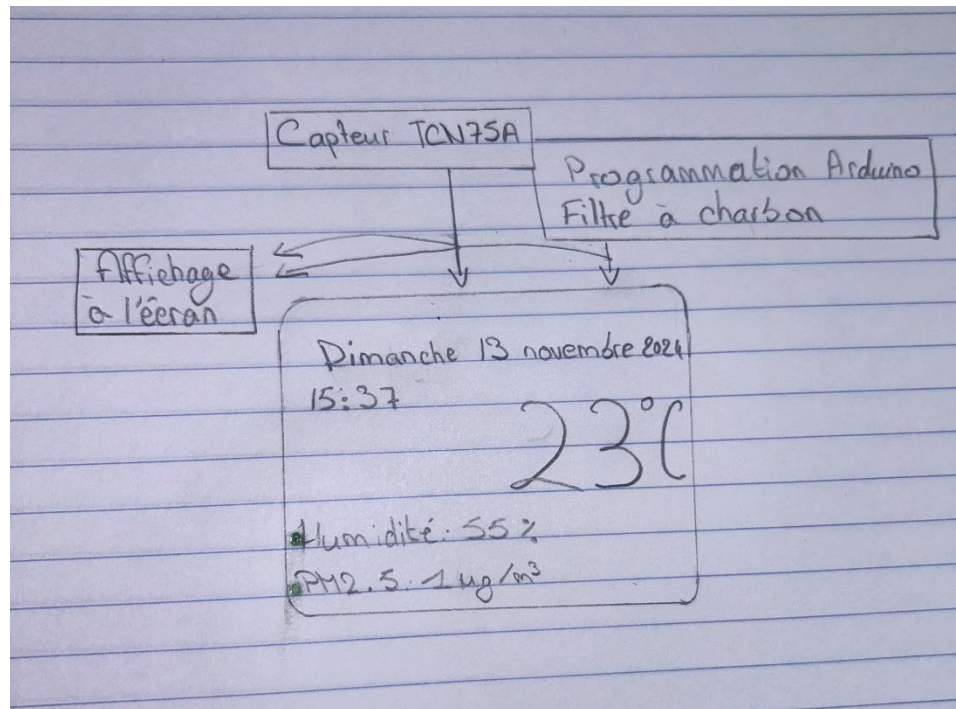 Capteur TCN75A
Programmation Arduino
Filtre à charbon
Affichage
à l'écran
Dimanche 13 novembre 2024
15:37
23°C
Humidité: 55%
PM2.5: 1 µg/m³